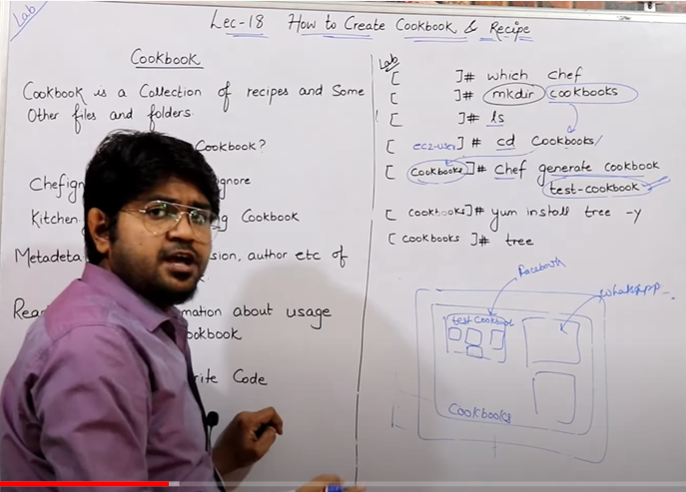 Lab
Lec-18 How to Create Cookbook & Recipe
Cookbook
Cookbook is a Collection of recipes and Some
Other files and folders.
Cookbook?
Chefign gnore
Kitchen g Cookbook
Metadeta sion, author etc of
Rea mation about usage
ookbook
rite Code
Lab
[ ]# which chef
[ ]# mkdir cookbooks
[ ]# ls
[ ec2-user] # cd Cookbooks/
[ Cookbooks]# chef generate cookbook
test-cookbook
[ cookbooks]# yum install tree -y
[ cookbooks ]# tree
Facebook
whatsapp
test Cookbook
Cookbooks